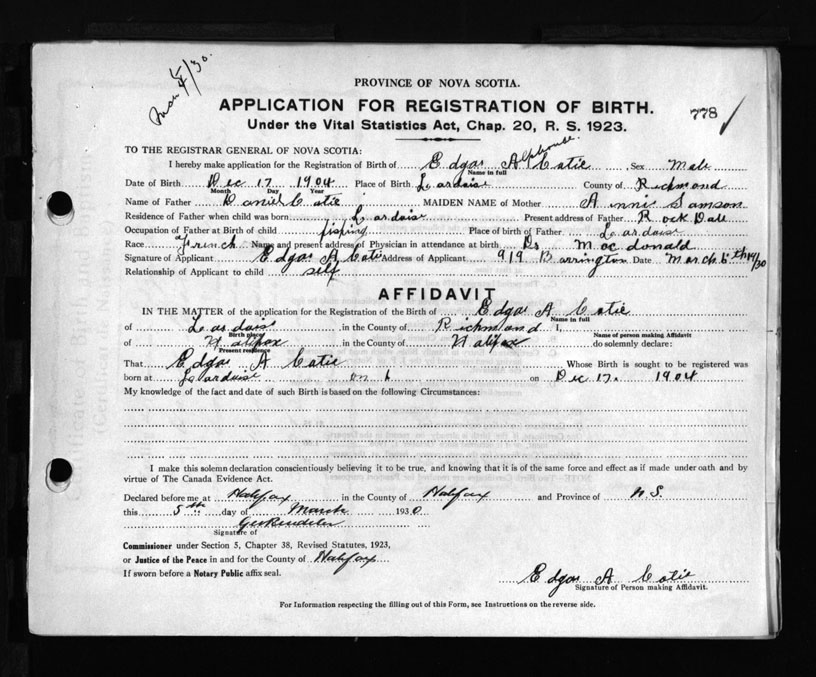 Mar 5/30.
PROVINCE OF NOVA SCOTIA.
APPLICATION FOR REGISTRATION OF BIRTH.
778
Under the Vital Statistics Act, Chap. 20, R. S. 1923.
TO THE REGISTRAR GENERAL OF NOVA SCOTIA:
Alphonse
I hereby make application for the Registration of Birth of Edgar A Catie Sex Male
Name in full
Date of Birth Dec 17 1904 Place of Birth Lardoise County of Richmond
Month Day Year
Name of Father Daniel Catie MAIDEN NAME of Mother Annie Samson
Residence of Father when child was born Lardoise Present address of Father Rock Dale
Occupation of Father at Birth of Child fishing Place of birth of Father Lardoise
Race French Name and present address of Physician in attendance at birth Dr Macdonald
Signature of Applicant Edgar A Catie Address of Applicant 919 Barrington Date March 5th 19/30
Relationship of Applicant to child self
AFFIDAVIT
IN THE MATTER of the application for the Registration of the Birth of Edgar A Catie
Name in full
of Lardoise in the County of Richmond I,
Birth place Name of person making Affidavit
of Halifax in the County of Halifax do solemnly declare:
Present residence
That Edgar A Catie Whose Birth is sought to be registered was
born at Lardoise on Dec 17. 1904
My knowledge of the fact and date of such Birth is based on the following Circumstances:
I make this solemn declaration conscientiously believing it to be true, and knowing that it is of the same force and effect as if made under oath and by
virtue of The Canada Evidence Act.
Declared before me at Halifax in the County of Halifax and Province of N.S.
this 5th day of March 1930
Signature of
Commissioner under Section 5, Chapter 38, Revised Statutes, 1923,
or Justice of the Peace in and for the County of Halifax
If sworn before a Notary Public affix seal.
Edgar A Catie
Signature of Person making Affidavit.
For Information respecting the filling out of this Form, see Instructions on the reverse side.